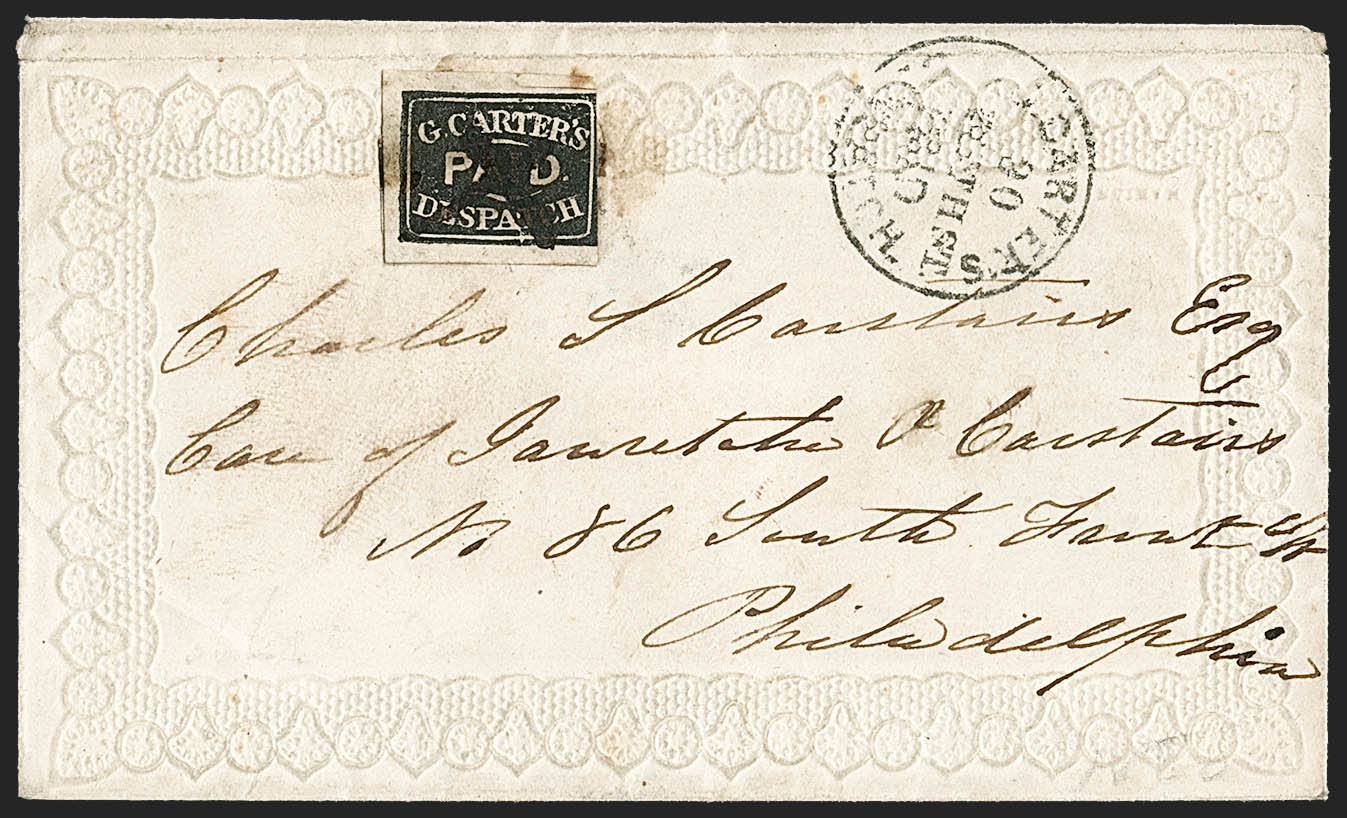 G. CARTER'S
PAID.
DESPATCH
CARTER'S DESPATCH
20
Charles S Carstairs Esq
Care of Janretche & Carstairs
No 86 South Front St
Philadelphia